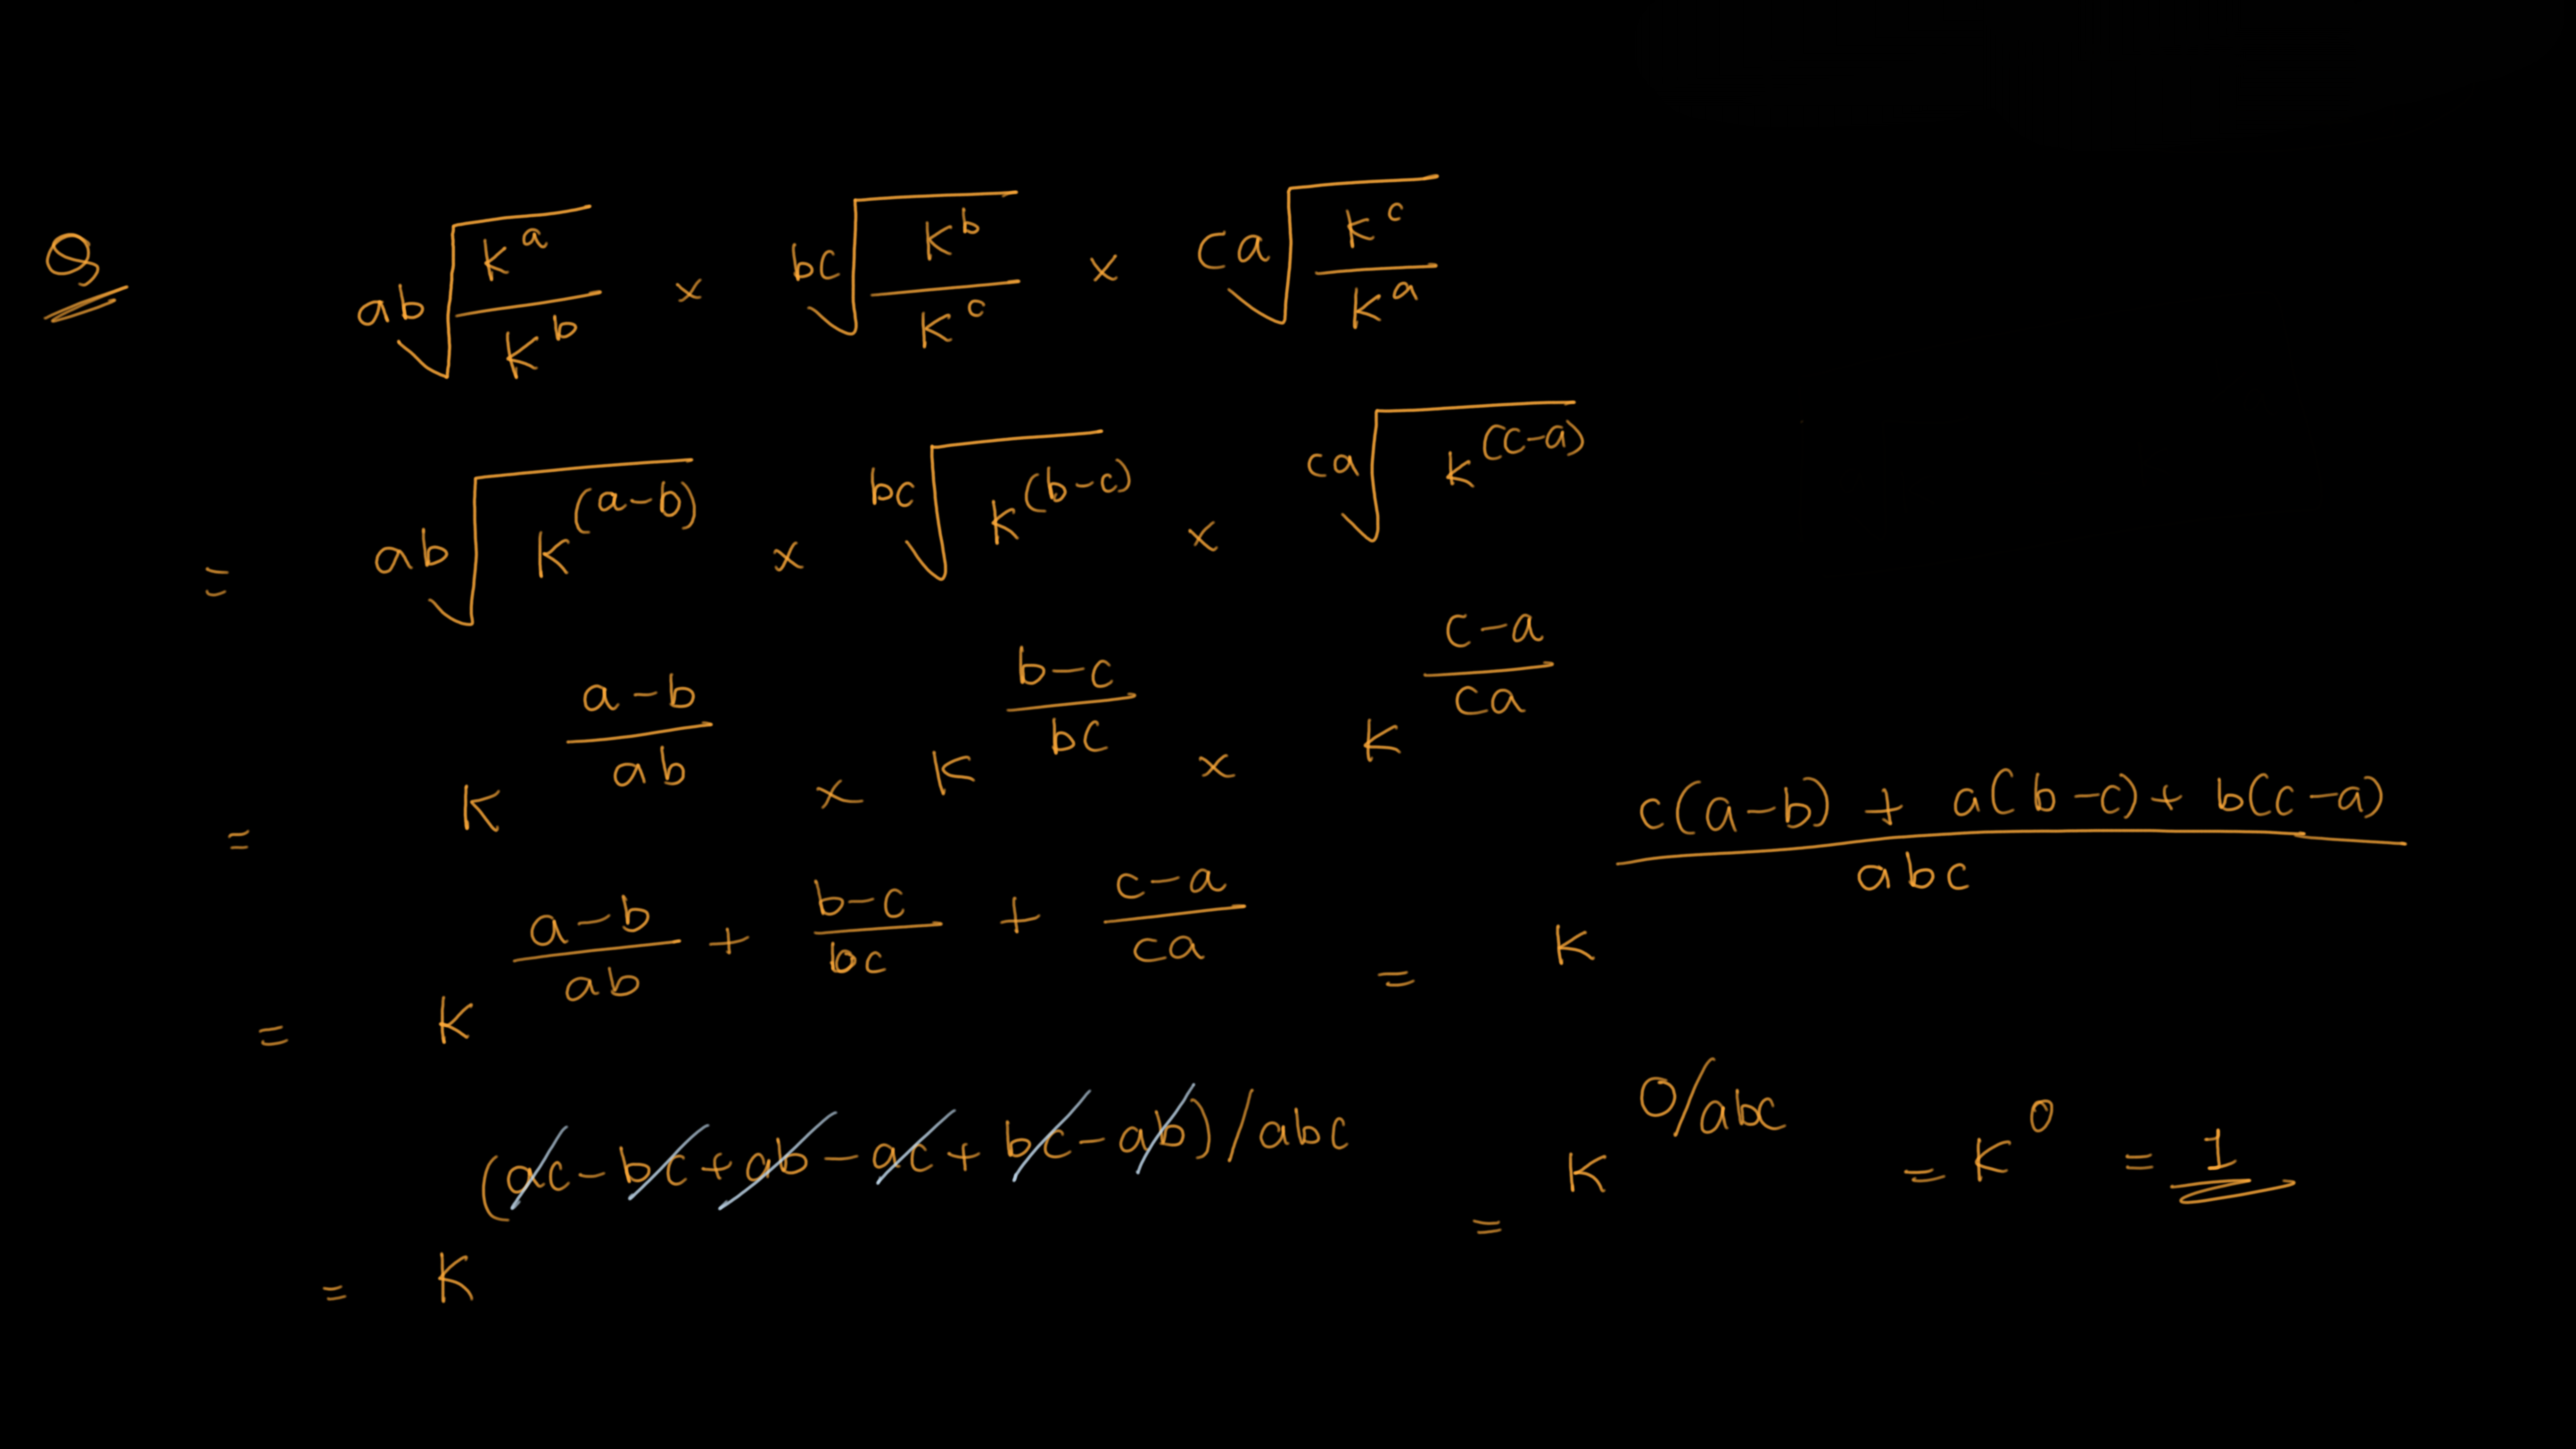 Q ab√(K^a / K^b) × bc√(K^b / K^c) × ca√(K^c / K^a)
= ab√(K^(a-b)) × bc√(K^(b-c)) × ca√(K^(c-a))
= K^((a-b)/ab) × K^((b-c)/bc) × K^((c-a)/ca)
= K^((a-b)/ab + (b-c)/bc + (c-a)/ca) = K^((c(a-b) + a(b-c) + b(c-a))/abc)
= K^((ac-bc+ab-ac+bc-ab)/abc) = K^(0/abc) = K^0 = 1